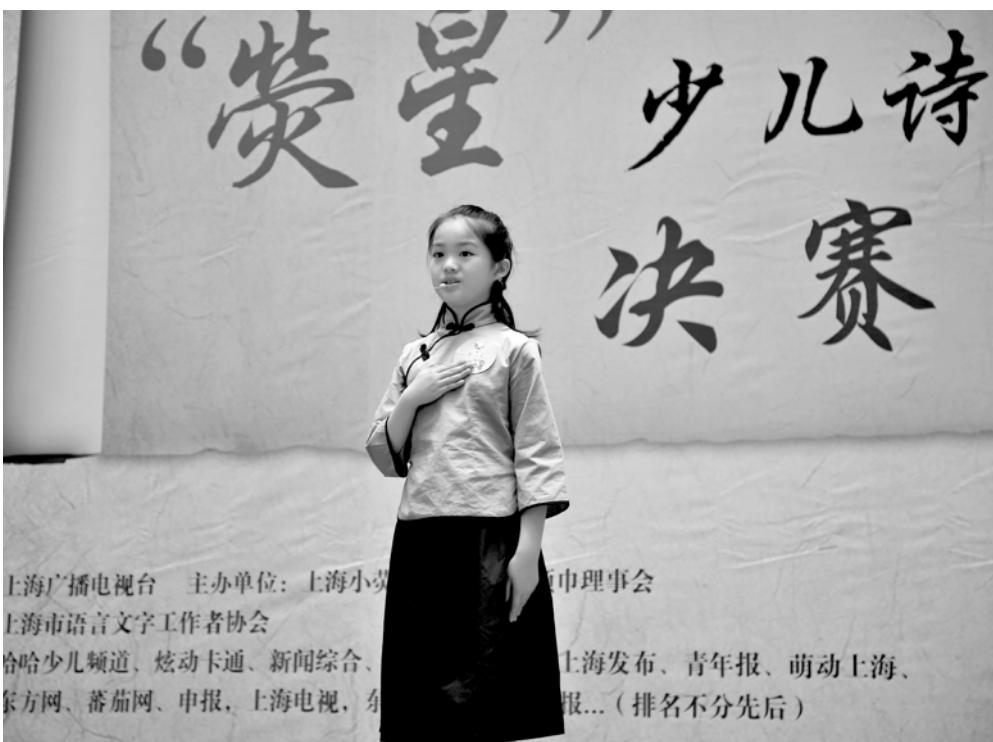 “荧星”少儿诗
决赛
上海广播电视台 主办单位：上海小荧 巾理事会
上海市语言文字工作者协会
哈哈少儿频道、炫动卡通、新闻综合、 上海发布、青年报、萌动上海、
东方网、蕃茄网、申报，上海电视，东 报...（排名不分先后）